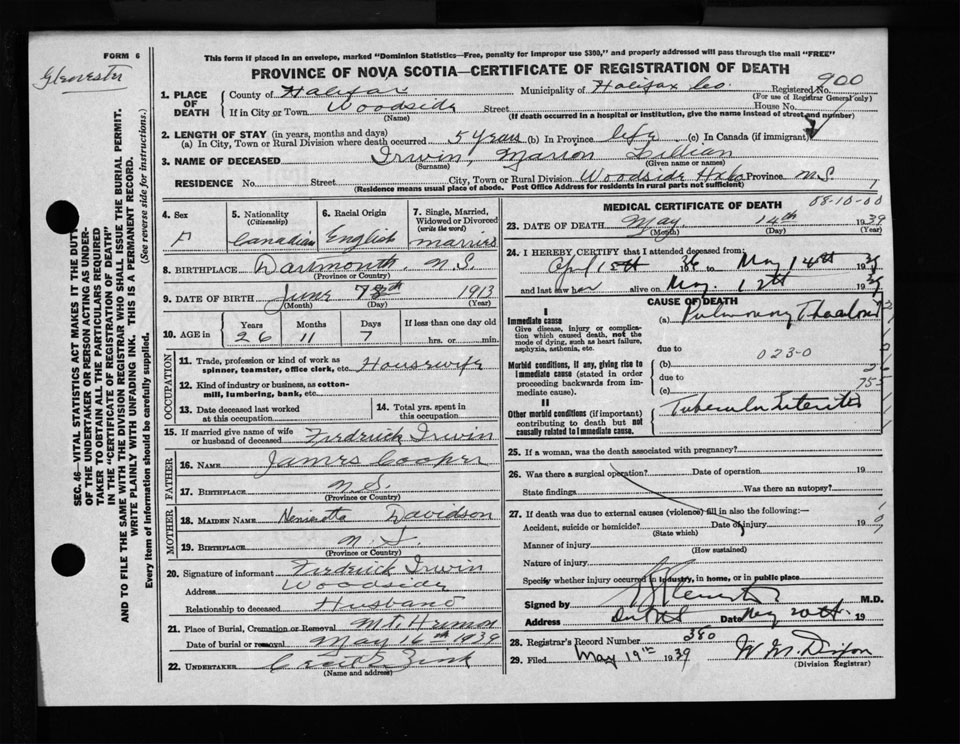 FORM 6
This form if placed in an envelope, marked "Dominion Statistics—Free, penalty for improper use $300," and properly addressed will pass through the mail "FREE"
PROVINCE OF NOVA SCOTIA—CERTIFICATE OF REGISTRATION OF DEATH
SEC. 46—VITAL STATISTICS ACT MAKES IT THE DUTY
OF THE UNDERTAKER OR PERSON ACTING AS UNDER-
TAKER TO OBTAIN ALL THE PARTICULARS REQUIRED
IN THE "CERTIFICATE OF REGISTRATION OF DEATH"
AND TO FILE THE SAME WITH THE DIVISION REGISTRAR WHO SHALL ISSUE THE BURIAL PERMIT.
WRITE PLAINLY WITH UNFADING INK. THIS IS A PERMANENT RECORD.
Every item of information should be carefully supplied. (See reverse side for instructions.)
1. PLACE OF DEATH
County of Halifax Municipality of Halifax Co. Registered No. 900
(For use of Registrar General only)
If in City or Town Woodside Street House No.
(Name) (If death occurred in a hospital or institution, give the name instead of street and number)
2. LENGTH OF STAY (in years, months and days)
(a) In City, Town or Rural Division where death occurred 5 years (b) In Province life (c) In Canada (if immigrant)
3. NAME OF DECEASED Irwin, Marion Lillian
(Surname) (Given name or names)
RESIDENCE No. Street City, Town or Rural Division Woodside Hxfx Province N.S.
(Residence means usual place of abode. Post Office Address for residents in rural parts not sufficient)
4. Sex F
5. Nationality (Citizenship) Canadian
6. Racial Origin English
7. Single, Married, Widowed or Divorced (write the word) married
8. BIRTHPLACE Dartmouth, N.S.
(Province or Country)
9. DATE OF BIRTH June 7th 1913
(Month) (Day) (Year)
10. AGE in Years 26 Months 11 Days 7 If less than one day old hrs. or min.
OCCUPATION
11. Trade, profession or kind of work as spinner, teamster, office clerk, etc. Housewife
12. Kind of industry or business, as cotton-mill, lumbering, bank, etc.
13. Date deceased last worked at this occupation
14. Total yrs. spent in this occupation
15. If married give name of wife or husband of deceased Fredrick Irwin
FATHER
16. NAME James Cooper
17. BIRTHPLACE N.S.
(Province or Country)
MOTHER
18. MAIDEN NAME Henrietta Davidson
19. BIRTHPLACE N.S.
(Province or Country)
20. Signature of informant Fredrick Irwin
Address Woodside
Relationship to deceased Husband
21. Place of Burial, Cremation or Removal Mt. Hermon
Date of burial or removal May 16th 1939
22. UNDERTAKER Zink
(Name and address)
MEDICAL CERTIFICATE OF DEATH
08-10-00
23. DATE OF DEATH May 14th 1939
(Month) (Day) (Year)
24. I HEREBY CERTIFY that I attended deceased from:
Apl 15th 36 to May 14th 39
and last saw her alive on May 12th 1939
CAUSE OF DEATH
I
Immediate cause
Give disease, injury or complication which caused death, not the mode of dying, such as heart failure, asphyxia, asthenia, etc.
(a) Pulmonary
due to
023-0
Morbid conditions, if any, giving rise to immediate cause (stated in order proceeding backwards from immediate cause).
(b)
due to
(c)
II
Other morbid conditions (if important) contributing to death but not causally related to immediate cause.
Tubercular Enteritis
25. If a woman, was the death associated with pregnancy?
26. Was there a surgical operation? Date of operation 19
State findings Was there an autopsy?
27. If death was due to external causes (violence) fill in also the following:—
Accident, suicide or homicide? Date of injury 19
(State which)
Manner of injury
(How sustained)
Nature of injury
Specify whether injury occurred in industry, in home, or in public place
Signed by M.D.
Address Date May 20th 19
28. Registrar's Record Number 380
29. Filed May 19th 1939 W. M. Dixon
(Division Registrar)